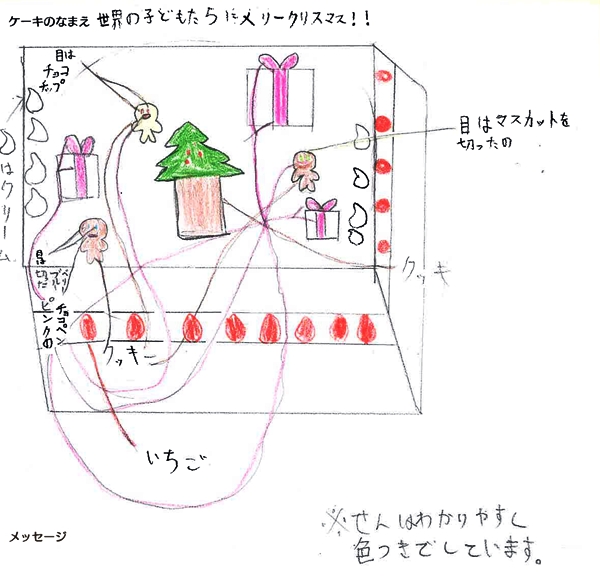 ケーキのなまえ 世界の子どもたちにメリークリスマス!!
目は
チョコ
チップ
目はマスカットを
切ったの
○はクリーム
目は
切った
ブルー
ベリー
ピンクの
チョコペン
クッキ
クッキー
いちご
※せんはわかりやすく
色つきでしています。
メッセージ